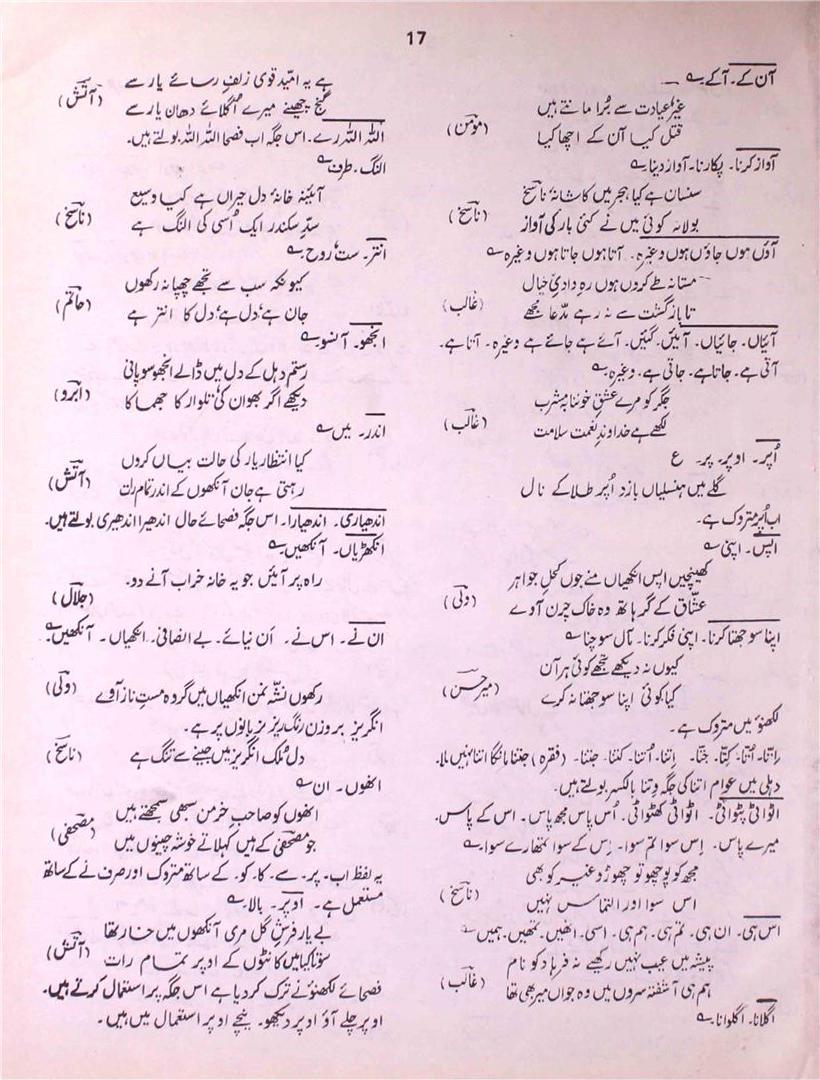 17
آن کے۔ آکے ؎
غیر عیادت سے بُرا مانتے ہیں
قتل کیا آن کے اچھا کیا (مومن)
آواز کرنا۔ پکارنا۔ آواز دینا ؎
سنسان ہے کیا ہجر میں کاشانۂ ناسخ
بولا نہ کوئی میں نے کئی بار کی آواز (ناسخ)
آؤں ہوں جاؤں ہوں وغیرہ۔ آتا ہوں جاتا ہوں وغیرہ ؎
مستانہ طے کروں ہوں رہِ وادیِٔ خیال
تا بازگشت سے نہ رہے مدّعا مجھے (غالب)
آئیاں۔ جائیاں۔ آئیں۔ گئیں۔ آئے ہے جائے ہے وغیرہ۔ آتا ہے۔
آتی ہے۔ جاتا ہے۔ جاتی ہے۔ وغیرہ ؎
جگر کو مرے عشقِ خوننابہ مشرب
لکھے ہے خداوندِ نعمت سلامت (غالب)
اُپر۔ اوپر۔ پر۔ ع
گلے میں ہنسلیاں بازو اُپر طلا کے نال
اب اُپر متروک ہے۔
اپس۔ اپنی ؎
کھینچیں اپس انکھیاں منے جوں کحلِ جواہر
عشّاق کے گر ہاتھ وہ خاکِ چرن آوے (ولی)
اپنا سوجھتا کرنا۔ اپنی فکر کرنا۔ مآل سوچنا ؎
کیوں نہ دیکھے تجھے کوئی ہر آن
کیا کوئی اپنا سوجھتا نہ کرے (میر حسن)
لکھنؤ میں متروک ہے۔
اِتنا۔ اُتنا۔ کِتنا۔ جتنا۔ اِتنا۔ اُتنا۔ کتنا۔ جتنا۔ (فقرہ) جتنا مانگا اتنا نہیں ملا۔
دہلی میں عوام اتنا کی جگہ وِتنا بالکسر بولتے ہیں۔
اٹواٹی پٹواٹی۔ اٹواٹی کھٹواٹی۔ اُس پاس مجھ پاس۔ اس کے پاس۔
میرے پاس۔ اِس سوا تم سوا۔ اِس کے سوا تمھارے سوا ؎
مجھ کو پوچھو تو چھوڑ دو غیر کو بھی
اس سوا اور التماس نہیں (ناسخ)
اس ہی۔ ان ہی۔ تم ہی۔ ہم ہی۔ اسی۔ انھیں۔ تمھیں۔ ہمیں ؎
پیشہ میں عیب نہیں رکھیے نہ فرہاد کو نام
ہم ہی آشفتہ سروں میں وہ جواں میر بھی تھا (غالب)
اگلانا۔ اگلوانا ؎
ہے یہ امّید قوی زلفِ رسائے یار سے
گنج چھینے میرے اُگلائے دھان یار سے (آتش)
اللہ اللہ رے۔ اس جگہ اب فصحا اللہ اللہ بولتے ہیں۔
النگ۔ طرف ؎
آئینہ خانۂ دل حیراں ہے کیا وسیع
سدِّ سکندر ایک اُسی کی النگ ہے (ناسخ)
انتر۔ ست، روح ؎
کیونکہ سب سے تجھے چھپا نہ رکھوں
جان ہے، دل ہے، دل کا انتر ہے (حاتم)
انجھو۔ آنسو ؎
رستم دہل کے دل میں ڈالے انجھو سو پانی
دیکھے اگر بھواں کی تلوار کا جھمکا (آبرو)
اندر۔ میں ؎
کیا انتظار یار کی حالت بیاں کروں
رہتی ہے جان آنکھوں کے اندر تمام رات (آتش)
اندھیاری۔ اندھیارا۔ اس جگہ فصحائے حال اندھیرا اندھیری بولتے ہیں۔
انکھڑیاں۔ آنکھیں ؎
راہ پر آئیں جو یہ خانہ خراب آنے دو۔ (جلال)
ان نے۔ اس نے۔ اَن نیائے۔ بے انصافی۔ انکھیاں۔ آنکھیں ؎
رکھوں نشّہ نمن انکھیاں میں گر وہ مستِ ناز آوے (ولی)
انگریز بروزن رنگ ریز زبانوں پر ہے۔
دل مُلک انگریز میں جینے سے تنگ ہے (ناسخ)
انھوں۔ ان ؎
انھوں کو صاحب خرمن سبھی سمجھتے ہیں
جو مصحفی کے ہیں کہلاتے خوشہ چینوں میں (مصحفی)
یہ لفظ اب۔ پر۔ سے۔ کا۔ کو۔ کے ساتھ متروک اور صرف نے کے ساتھ
مستعمل ہے۔ اوپر۔ بالا ؎
بے یار فرشِ گل مری آنکھوں میں خار تھا
سوتا کیا میں کانٹوں کے اوپر تمام رات (آتش)
فصحائے لکھنؤ نے ترک کر دیا ہے اس جگہ پر استعمال کرتے ہیں۔
اوپر چلے آؤ اوپر دیکھو۔ نیچے اوپر استعمال میں ہیں۔